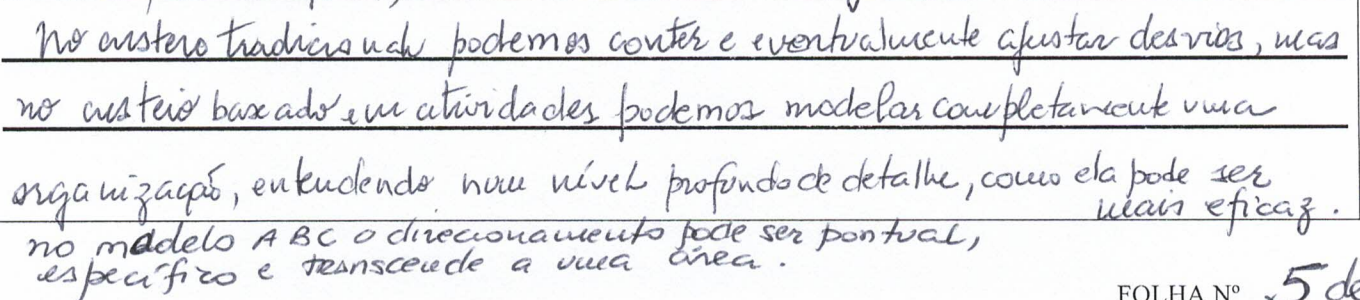 no custeio tradicional podemos conter e eventualmente ajustar desvios, mas
no custeio baseado em atividades podemos modelar completamente uma
organização, entendendo num nível profundo de detalhe, como ela pode ser
mais eficaz.
no modelo ABC o direcionamento pode ser pontual,
específico e transcende a uma área.
FOLHA Nº 5 de